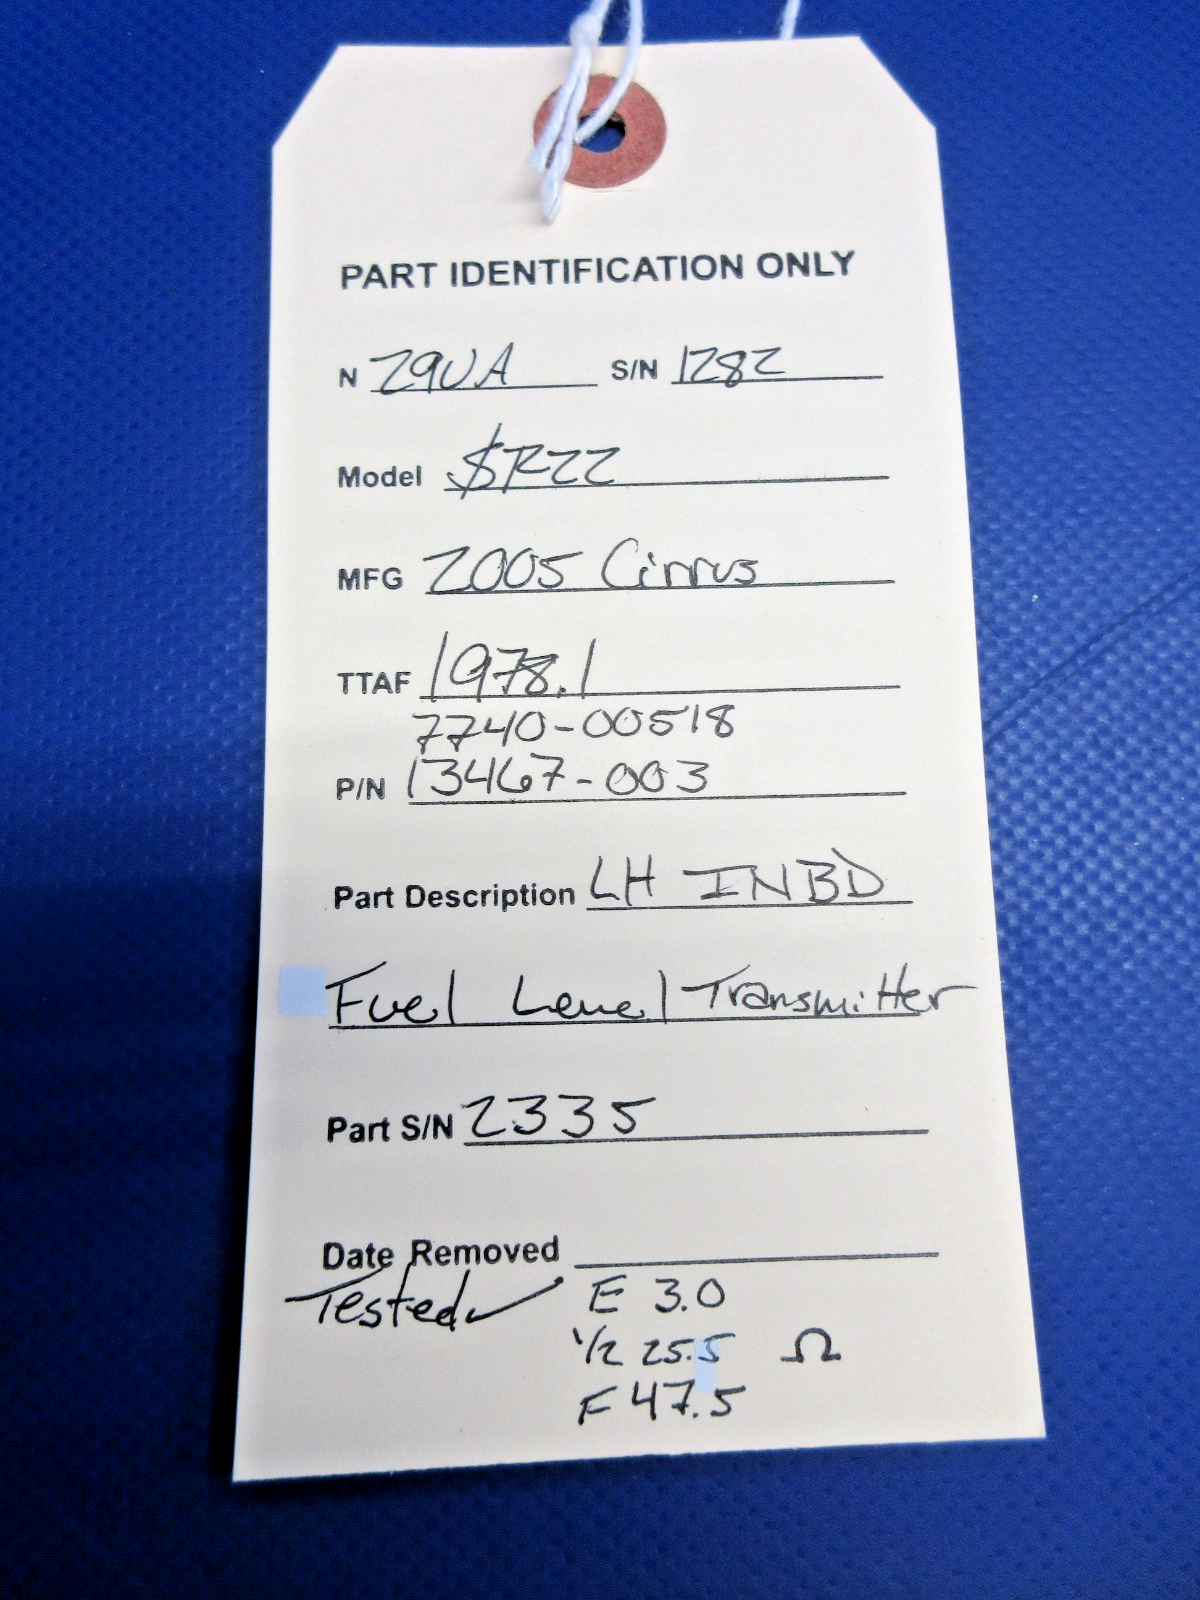 PART IDENTIFICATION ONLY
N 29UA S/N 1282
Model SR22
MFG 2005 Cirrus
TTAF 1978.1
7740-00518
P/N 13467-003
Part Description LH INBD
Fuel Level Transmitter
Part S/N 2335
Date Removed
Tested✓ E 3.0
1/2 25.5 Ω
F 47.5